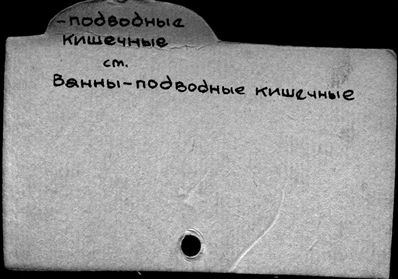 -подводные
кишечные
см.
Ванны-подводные кишечные